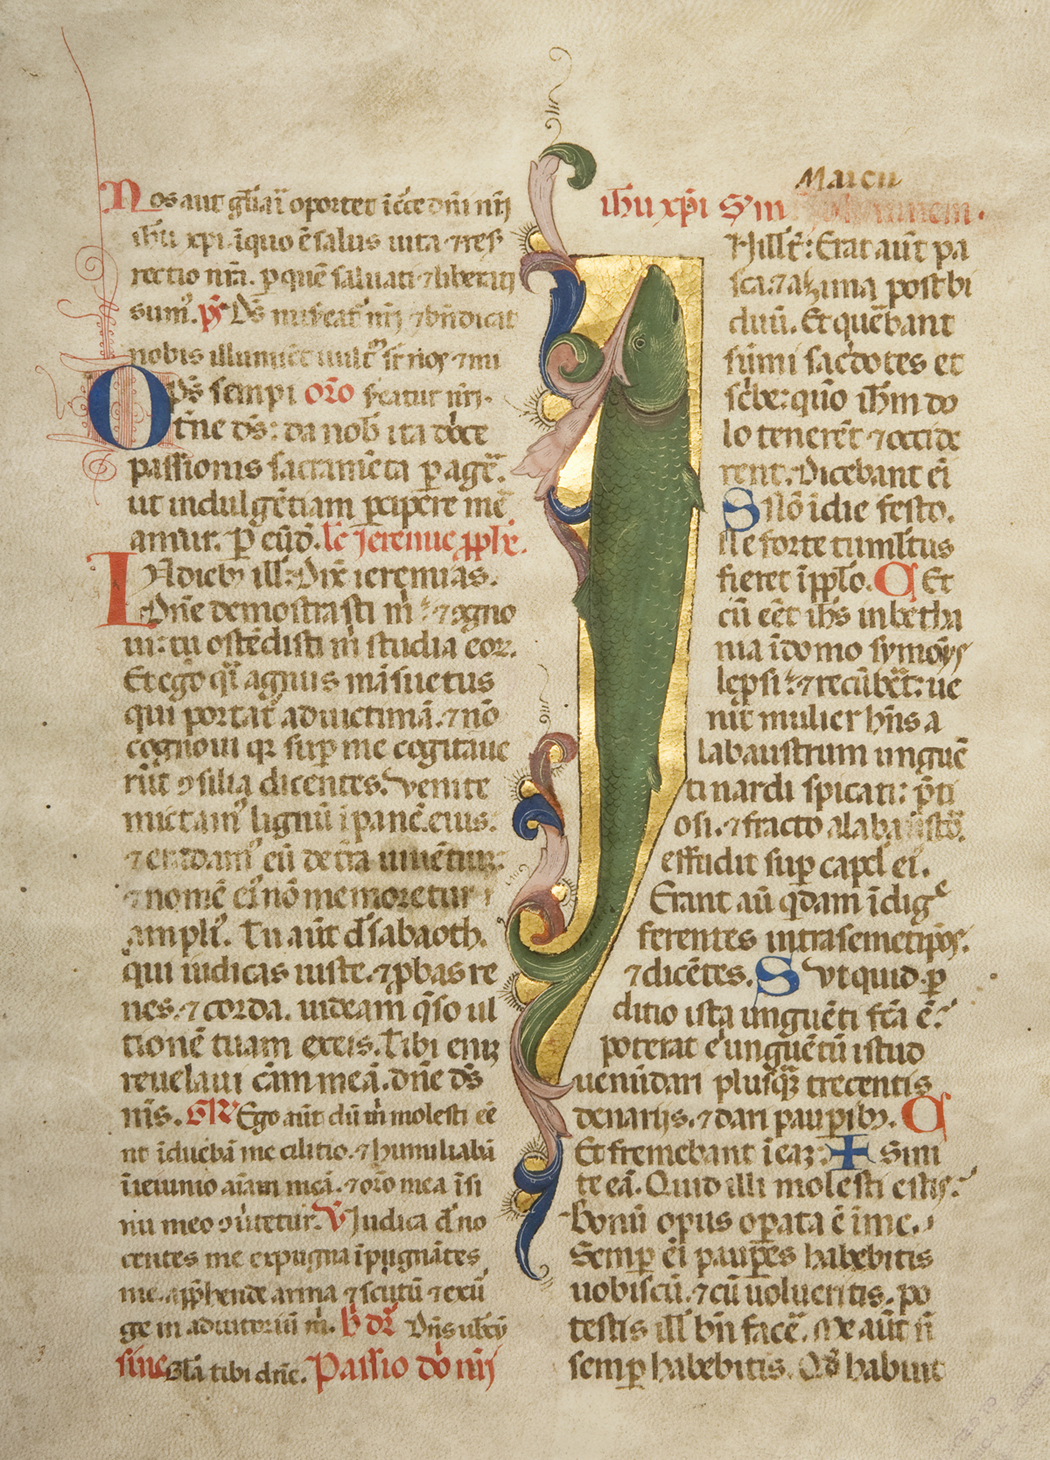 Nos aut gl̄iaī oportet ī cͨe dnī nr̄i
ihū xp̄i. ī quo ē salus uita ⁊ resͬ
rectio nr̄a. p quē saluati ⁊ liberati
sumꝰ. p̄s Ds̄ nr̄i ⁊ bn̄dicat
nobis illumiēt uult sr̄ nos ⁊ mi
Op̄s sempi or̄o reatur nr̄i.
t̄ne ds̄: da nob ita dn̄ce
passionis sacramēta p agē.
ut indulgētiam ꝑcipere me
amur. P eūd̄. lc̄ Jeremie ꝓph̄e.
IN dieb ill: Dix̄ ieremias.
Dn̄e demostrasti m̄ ⁊ cogno
ui: tu ostēdisti m̄ studia eoꝝ.
Et ego q̄i agnus māsuetus
qui portat̄ ad uictimā. ⁊ nō
cognoui qꝛ suꝑ me cogitaue
rūt ꝯsilia dicentes. venite
mictamꝰ lignū ī panē eius.
⁊ eradamꝰ eū de t̄ra uiuētiuꝫ.
⁊ nomē eiꝰ nō memoretur
ampliꝰ. Tu aūt ds̄ sabaoth.
qui iudicas iuste. ⁊ ꝓbas re
nes. ⁊ corda. uideam q̄so ul
tionē tuam ex eis. Tibi eniꝫ
reuelaui cām meā. dn̄e ds̄
m̄s. GR Ego aūt dū m̄ molesti eē
nt īduebā me cilitio. ⁊ humiliabā
ī ieiunio aīam meā. ⁊ or̄o mea ī si
nu meo ꝯuertetur. V Judica d̄ no
centes me expugna īpugnātes
me. app̄hende arma ⁊ scutū ⁊ exū
ge in adiutoriū m̄.
sine Gl̄a tibi dn̄e. Passio dn̄i nr̄i
Marcū
ihū xp̄i Sm̄
N illt̄: Erat aūt pa
sca: ⁊ aȥima post bi
duū. Et quēbant
sūmi sac̄dotes et
sc̄be: quō ihm̄ do
lo tenerēt ⁊ occide
rent. Dicebant ei
S Nō ī die festo.
Ne forte tumltus
fieret ī pplo. C Et
cū eēt ihs̄ in betha
nia ī domo symoīs
lep̄si: ⁊ recūbēt: ue
nit mulier hn̄s a
labaustrum unguē
ti nardi spicati: p̄ti
osi. ⁊ fracto alabaustro.
effudit suꝑ caput eiꝰ.
Erant aūt q̄dam īdigͤ
ferentes intra semetipos.
⁊ dicētes. S Vt quid ꝑ
ditio ista unguēti fc̄a ē?
poterat e unguētū istud
uenūdari plusq̄ trecentis
denarijs. ⁊ dari pauꝑibꝫ. C
Et fremebant ī eaꝫ: + Sini
te eā. Quid illi molesti estis?
Bonū opus oꝑata ē ī me.
Semꝑ ei pauꝑes habebitis
uobiscū. ⁊ cū uolueritis. po
testis ill bn̄ facē. Me aūt n̄
semꝑ habebitis. Qd̄ habuit